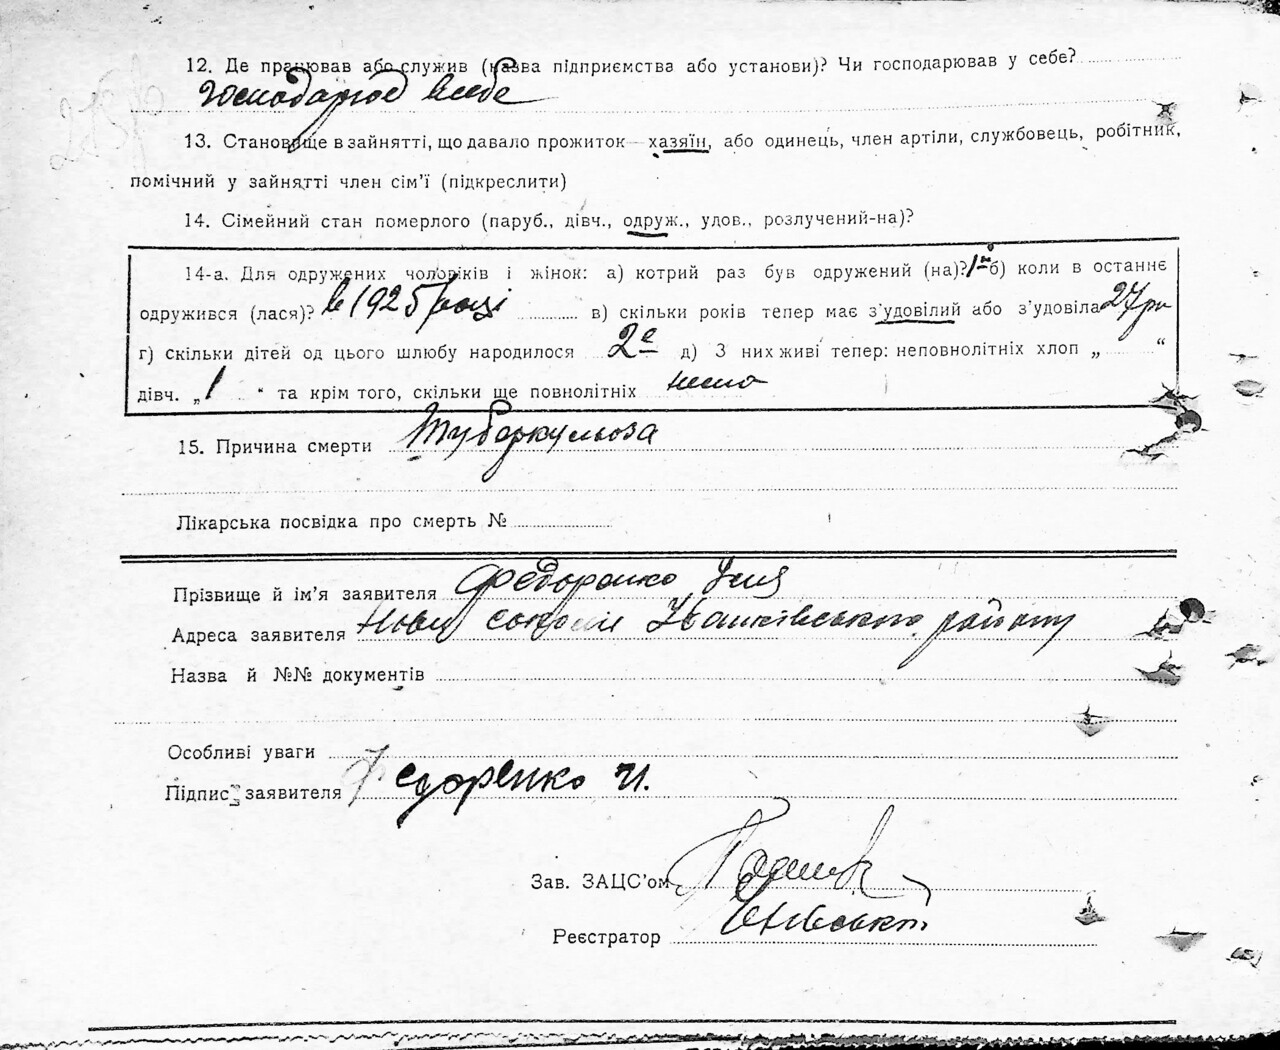 12. Де працював або служив (назва підприємства або установи)? Чи господарював у себе?
господарював в себе
13. Становище в зайнятті, що давало прожиток — хазяїн, або одинець, член артіли, службовець, робітник,
помічний у зайнятті член сім'ї (підкреслити)
14. Сімейний стан померлого (паруб., дівч., одруж., удов., розлучений-на)?
14-а. Для одружених чоловіків і жінок: а) котрий раз був одружений (на)? 1й б) коли в останнє
одружився (лася)? в 1925 році в) скільки років тепер має з'удовілий або з'удовіла 27 рік
г) скільки дітей од цього шлюбу народилося 2е д) З них живі тепер: неповнолітніх хлоп „ “
дівч. „ 1 “ та крім того, скільки ще повнолітніх нема
15. Причина смерти Туберкульоза
Лікарська посвідка про смерть №
Прізвище й ім'я заявителя Федоренко
Адреса заявителя Нові Іванківського району
Назва й №№ документів
Особливі уваги
Підпис заявителя Федоренко И.
Зав. ЗАЦС'ом
Реєстратор